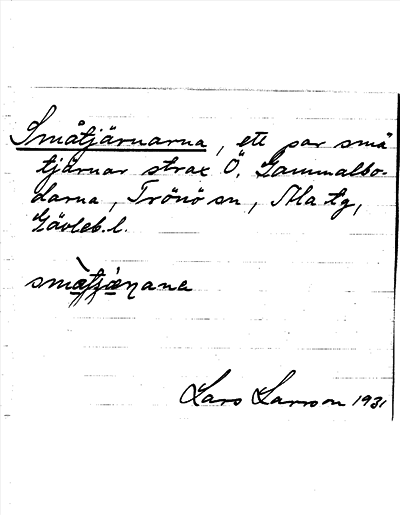 Småtjärnarna, ett par små
tjärnar strax Ö. Gammalbo-
darna, Trönö sn, Ala tg,
Gävleb. l.
Lars Larson 1931